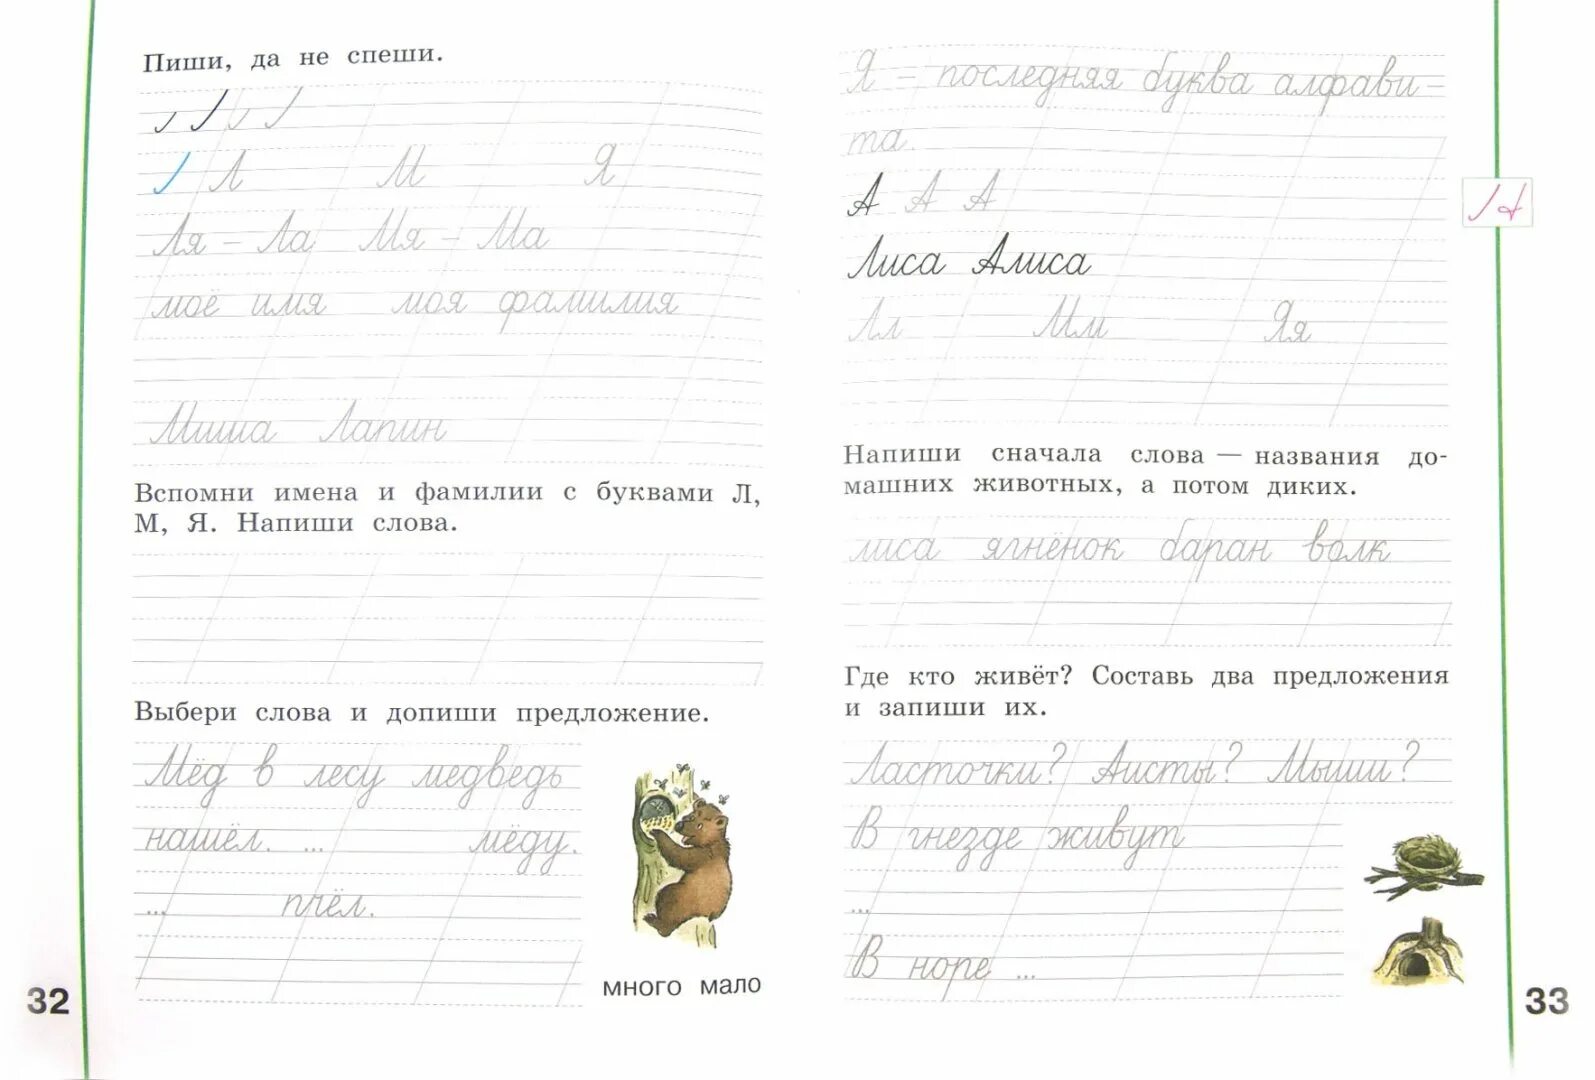 Пиши, да не спеши.
Л М Я
Ля – Ла Мя – Ма
моё имя моя фамилия
Миша Лапин
Вспомни имена и фамилии с буквами Л,
М, Я. Напиши слова.
Выбери слова и допиши предложение.
Мёд в лесу медведь
нашёл. ... мёду.
... пчёл.
много мало
32
Я – последняя буква алфави-
та.
А А А
Лиса Алиса
Лл Мм Яя
Напиши сначала слова — названия до-
машних животных, а потом диких.
лиса ягнёнок баран волк
Где кто живёт? Составь два предложения
и запиши их.
Ласточки? Аисты? Мыши?
В гнезде живут
...
В норе ...
33